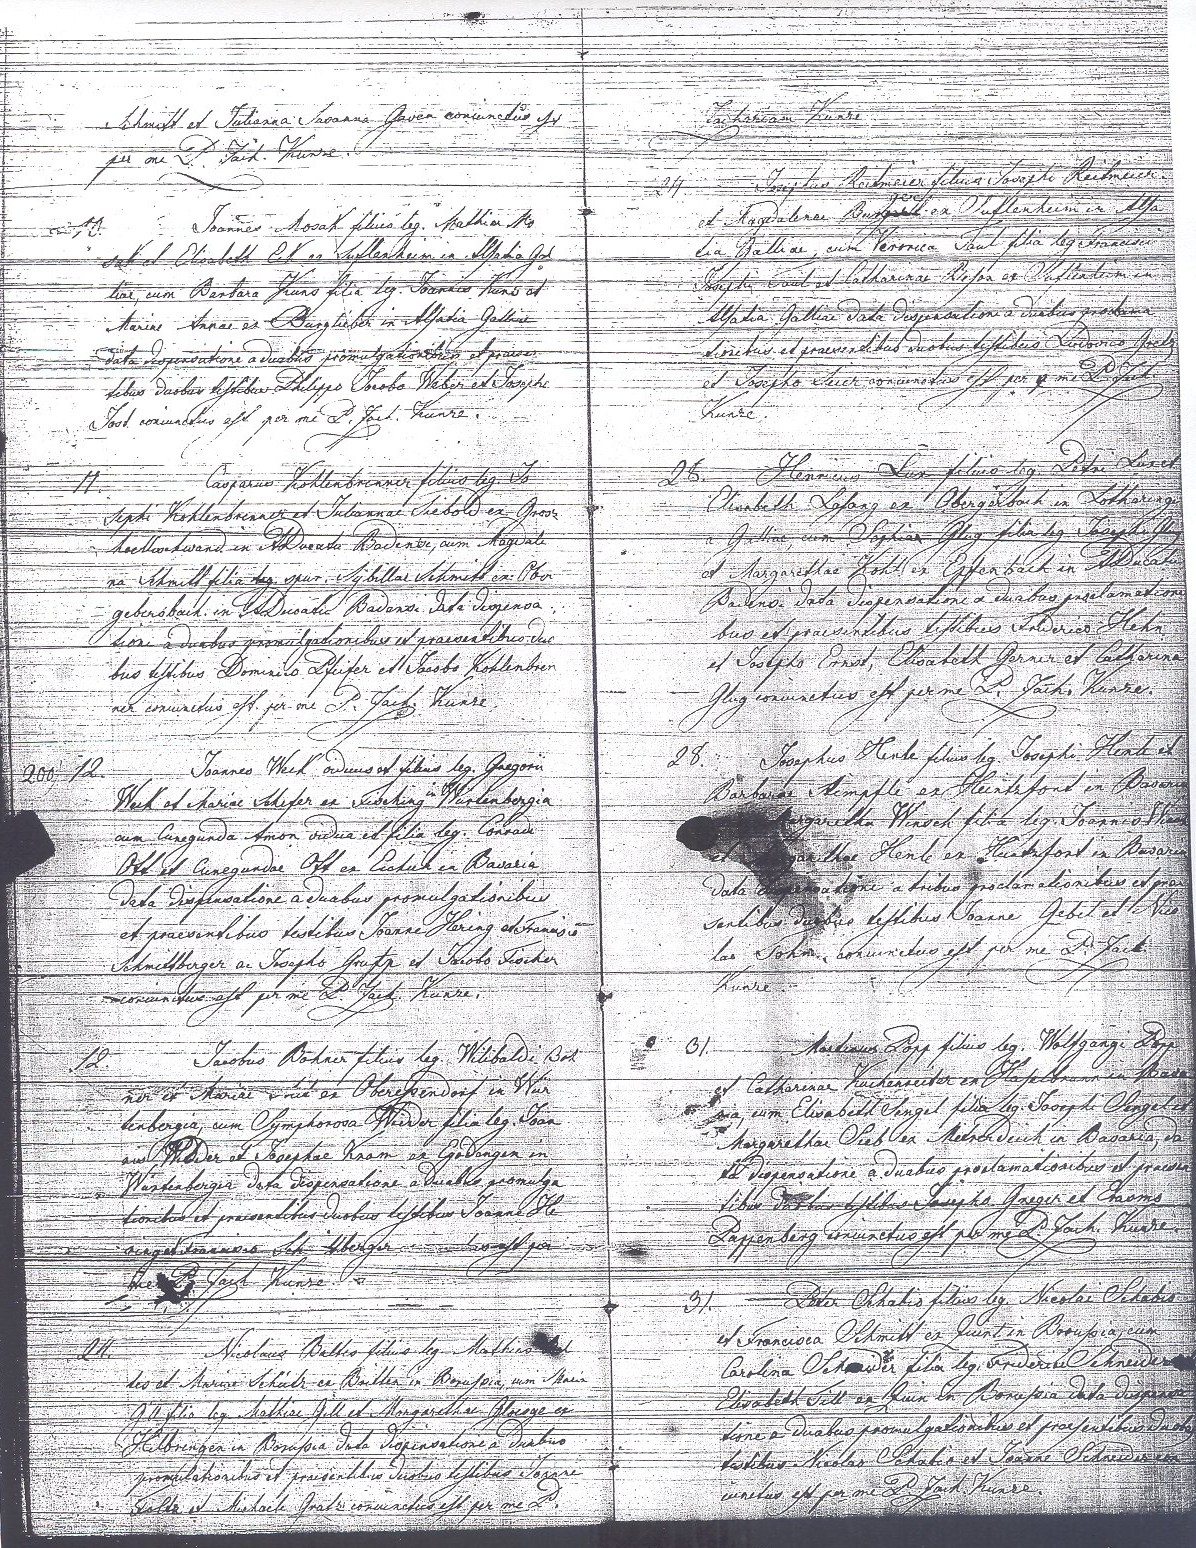 Schmitt et Julianna Susanna Gaven coniunctus est
per me P. Zach. Kunze.
11. Joannes Mosak filius leg. Mathiae Mo
sak et Elisabeth Ek ex Sufflenheim in Alsatia Gal
liae, cum Barbara Kuns filia leg. Joannis Kuns et
Mariae Annae ex in Alsatia Galliae
data dispensatione a duabus promulgationibus et praesen
tibus duobus testibus Philippo Jacobo Weber et Josepho
Jost coniunctus est per me P. Zach. Kunze.
11. Casparus Kohlenbrenner filius leg. Jo
sephi Kohlenbrenner et Juliannae Siebold ex Gros
in MDucatu Badensi, cum Magdale
na Schmitt filia leg. spur. Sybillae Schmitt ex Ober
gebersbach in MDucatu Badensi data dispensa
tione a duabus promulgationibus et praesentibus duo
bus testibus Dominico Pfeifer et Jacobo Kohlenbren
ner coniunctus est per me P. Zach. Kunze.
200 12. Joannes Weck viduus et filius leg. Gregorii
Weck et Mariae Schefer ex Fisching in Würtenbergia
cum Cunegunda Amon vidua et filia leg. Conradi
Ott et Cunegundae Ott ex in Bavaria
data dispensatione a duabus promulgationibus
et praesentibus testibus Joanne Hering et Francisco
Schmittberger ac Josepho et Jacobo Fischer
coniunctus est per me P. Zach. Kunze.
12. Jacobus Bohner filius leg. Wilibaldi Boh
ner et Mariae ex in Wür
tenbergia, cum Symphorosa Widder filia leg. Joan
nis Widder et Josephae Knam ex in
Würtenbergia data dispensatione a duabus promulga
tionibus et praesentibus duobus testibus Joanne He
ring et Francisco est per
me P. Zach. Kunze
24. Nicolaus Baltes filius leg. Mathiae Bal
tes et Mariae Schütz ex Britten in Borussia, cum Maria
Gill filia leg. Mathiae Gill et Margarethae ex
Hilbringen in Borussia data dispensatione a duabus
promulationibus et praesentibus duobus testibus Joanne
et Michaele Gratz coniunctus est per me P.
Zachariam Kunze
24 Josephus Reitmeier filius Josephi Reitmeier
et Magdalenae ex Sufflenheim in Alsa
tia Galliae, cum Veronica Saul filia leg. Francisci
Josephi Saul et Catharinae ex Sufflenheim in
Alsatia Galliae data dispensatione a duabus proclama
tionibus et praesentibus duobus testibus Ludovico
et Josepho coniunctus est per me P. Zach.
Kunze.
28. Henricus Lux filius leg. Petri Lux et
Elisabeth Lasang ex in Lotharingi
a Galliae, cum Sophia Glug filia leg. Josephi Glug
et Margarethae Kohl ex Epfenbach in MDucatu
Badensi data dispensatione a duabus proclamationi
bus et praesentibus testibus Friderico Hehn
et Josepho Ernst, Elisabeth Gerner et Catharina
Glug coniunctus est per me P. Zach. Kunze.
28. Josephus Henle filius leg. Josephi Henle et
Barbarae Kempfle ex in Bavaria
Margaretha Winsch filia leg. Joannis
et Margarethae Henle ex in Bavaria
data dispensatione a tribus proclamationibus et prae
sentibus duobus testibus Joanne Gebel et Nico
lao Sohm, coniunctus est per me P. Zach.
Kunze
31. Martinus Popp filius leg. Wolfgangi Popp
et Catharinae Kuchenreiter ex Haselbrunn in Bava
ria, cum Elisabeth Sengel filia leg. Josephi Sengel et
Margarethae Sieb ex in Bavaria, da
ta dispensatione a duabus proclamationibus et praesen
tibus duobus testibus Josepho Greger et Erasmo
Pappenberg coniunctus est per me P. Zach. Kunze
31. Peter Schabio filius leg. Nicolai Schabio
et Francisca Schmitt ex Quint in Borussia, cum
Carolina Schneider filia leg. Friderici Schneider
Elisabeth Till ex in Borussia data dispensa
tione a duabus promulgationibus et praesentibus duobus
testibus Nicolao Schabio et Joanne Schneider con
iunctus est per me P. Zach. Kunze.